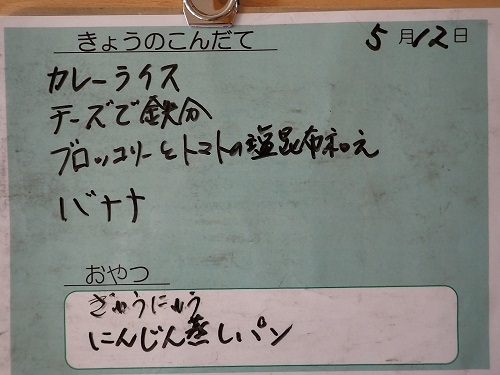 きょうのこんだて 5月12日
カレーライス
チーズで鉄分
ブロッコリーとトマトの塩昆布和え
バナナ
おやつ
ぎゅうにゅう
にんじん蒸しパン